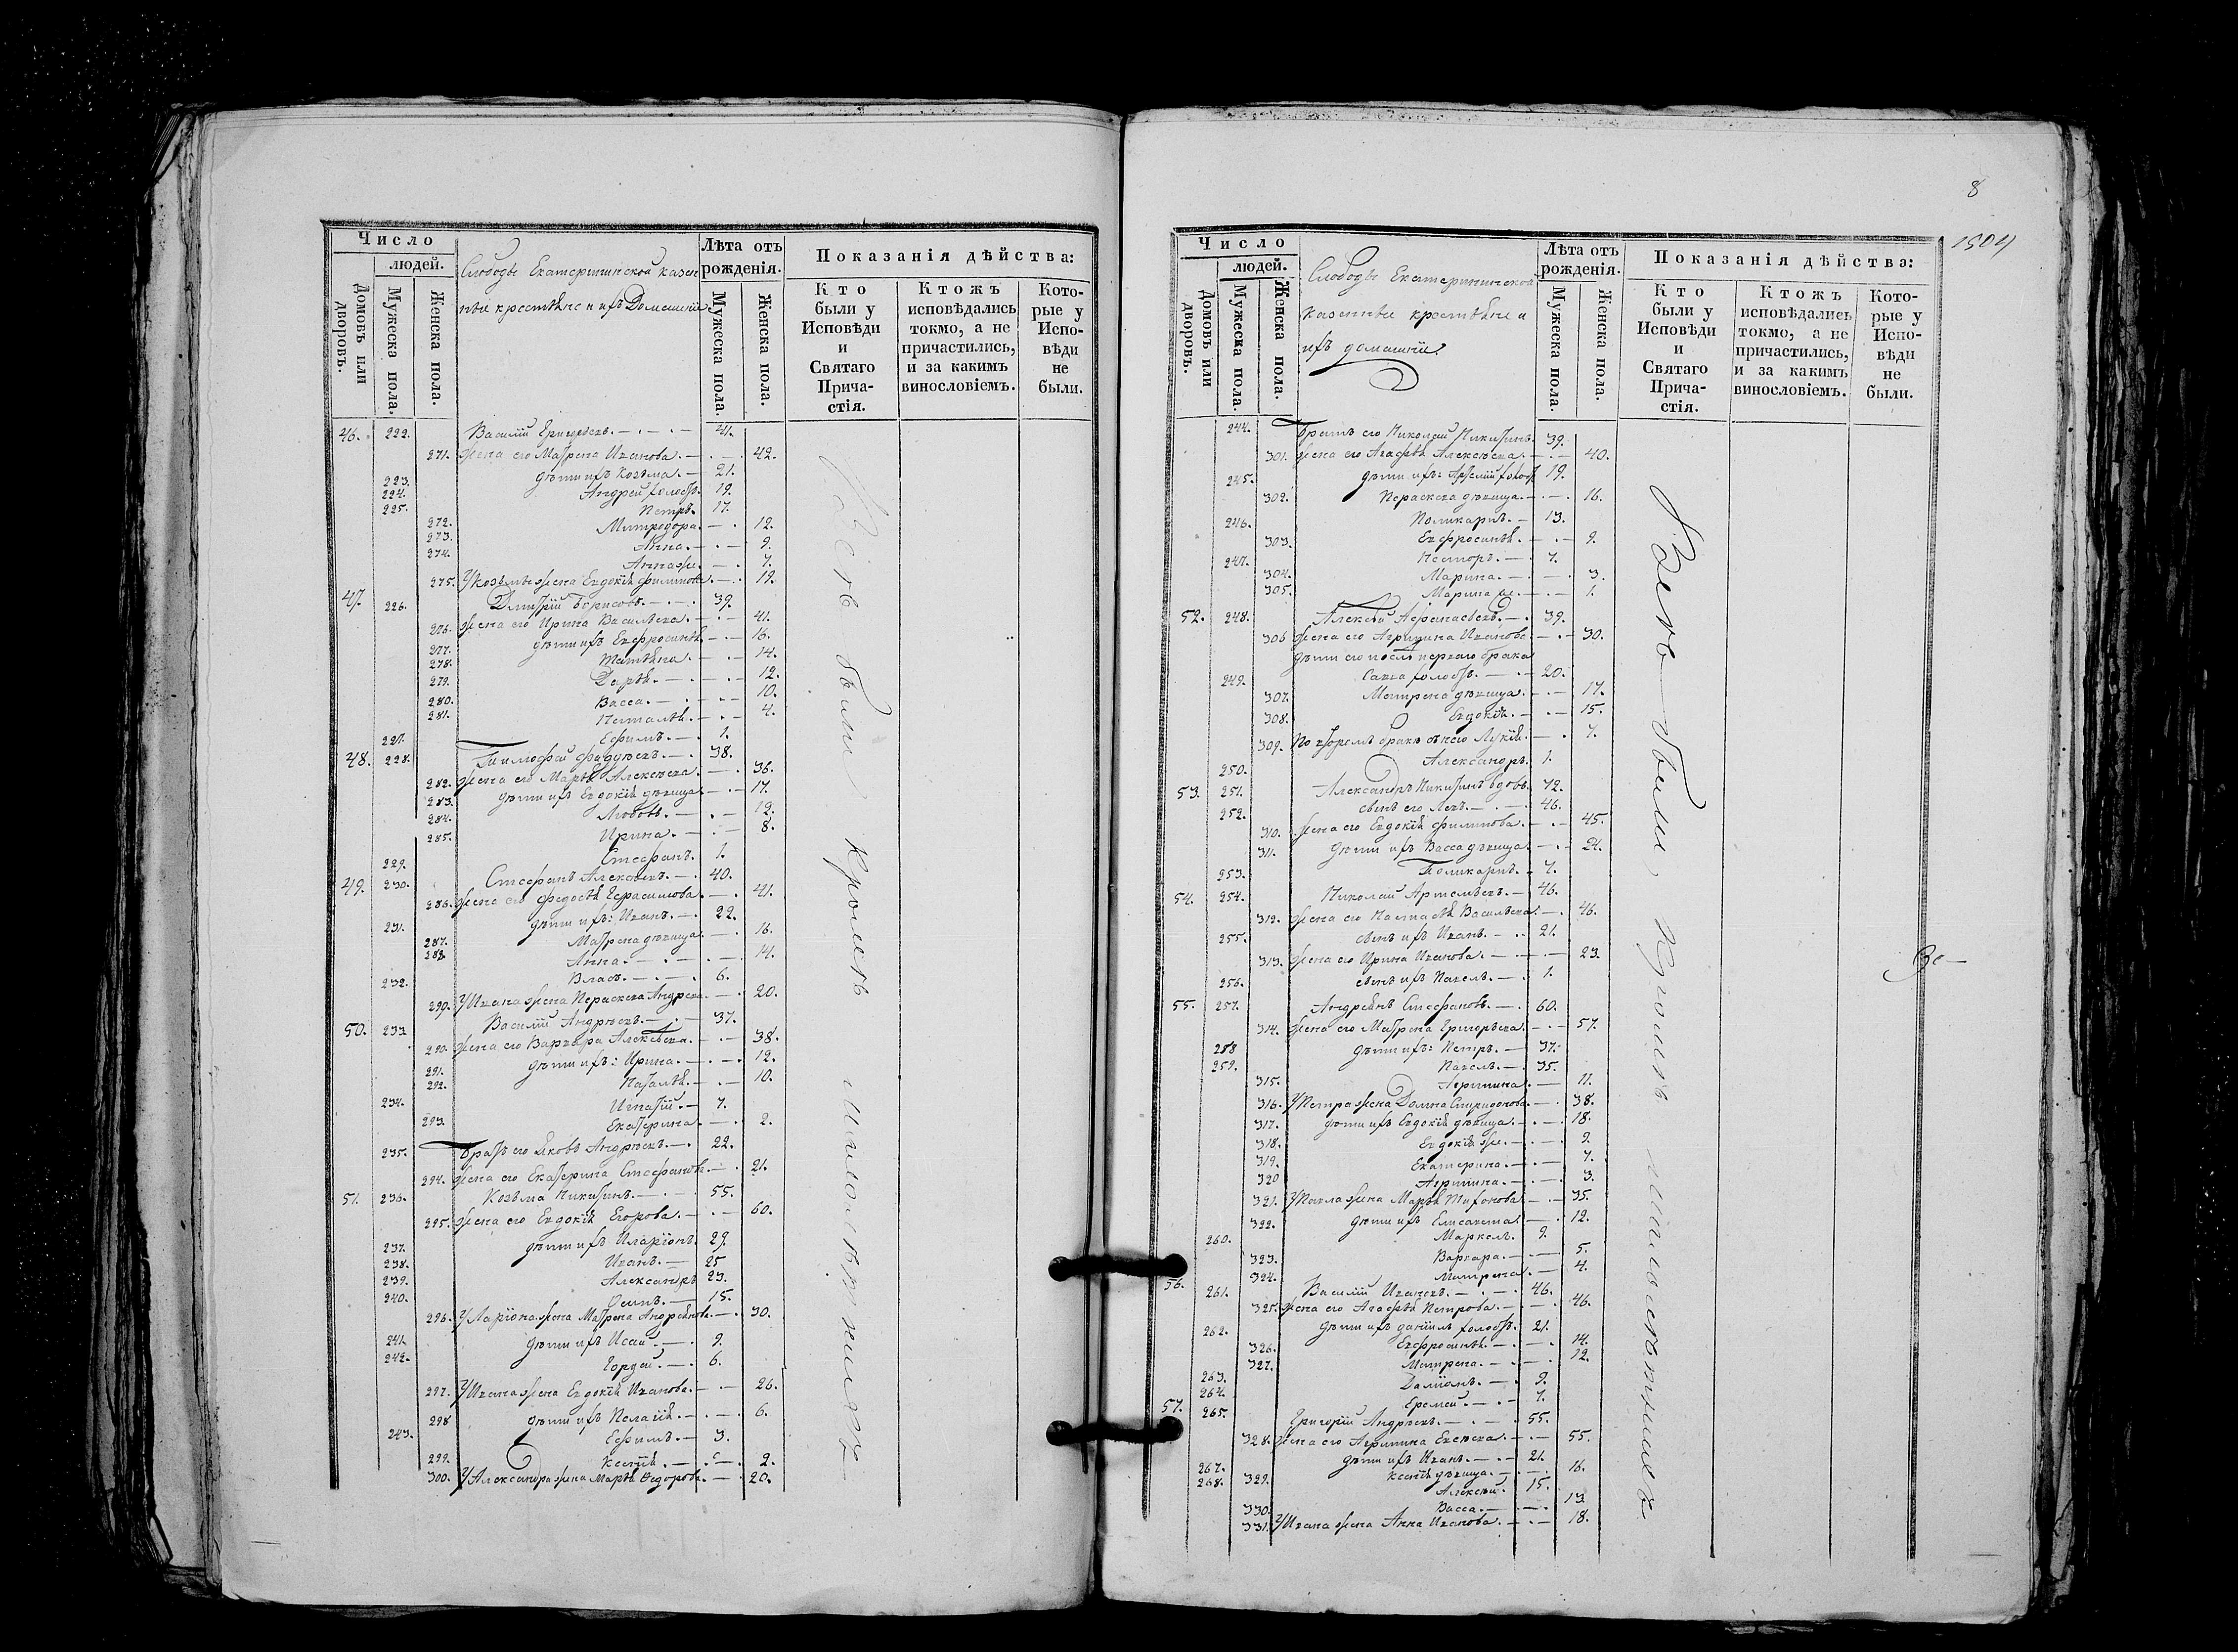 Число
людей.
Домовъ или дворовъ.
Мужеска пола.
Женска пола.
Слободы Екатерининской казен
ные крестьяне и ихъ Домашніе
Лѣта отъ рожденія.
Мужеска пола.
Женска пола.
Показанія дѣйства:
Кто были у Исповѣди и Святаго Прича-стія.
Ктожъ исповѣдались токмо, а не причастились, и за какимъ винословіемъ.
Кото-рые у Испо-вѣди не были.
46. 222. Василій Григорьевъ. 41.
271. жена его Матрена Иванова. 42.
223. дѣти ихъ Козьма. 21.
224. Андрей холостъ. 19.
225. Петръ. 17.
272. Митродора. 12.
273. Анна. 9.
274. Анна же. 7.
275. У Козьмы жена Евдокія Филипова. 19.
47. 226. Дмитрій Борисовъ. 39.
276. жена его Ирина Васильева. 41.
277. дѣти ихъ Евфросинья 16.
278. Татьяна. 14.
279. Дарья. 12.
280. Васса. 10.
281. Наталья. 4.
227. Ефимъ. 1.
48. 228. Тимофей Фадѣевъ. 38.
282. жена его Марья Алексѣева. 36.
283. дѣти ихъ Евдокія дѣвица 17.
284. Любовь. 12.
285. Ирина. 8.
229. Стефанъ. 1.
49. 230. Стефанъ Алексѣевъ. 40.
286. жена его Федосья Герасимова. 41.
231. дѣти ихъ: Иванъ. 22.
287. Матрена дѣвица. 16.
288. Анна. 14.
232. Власъ. 6.
290. У Ивана жена Параскева Андреева. 20.
50. 233. Василій Андрѣевъ. 37.
290. жена его Варвара Алексѣева. 38.
291. дѣти ихъ: Ирина. 12.
292. Наталья. 10.
234. Игнатій. 7.
293. Екатерина. 2.
235. Братъ его Яковъ Андрѣевъ. 22.
294. жена его Екатерина Стефанова. 21.
51. 236. Козьма Никитинъ. 55.
295. жена его Евдокія Егорова. 60.
237. дѣти ихъ Иларіонъ 29.
238. Иванъ. 25
239. Александръ 23.
240. Осипъ. 15.
296. У Ларіона жена Матрена Андреянова. 30.
241. дѣти ихъ Исай. 9.
242. Гордей. 6.
297. У Ивана жена Евдокія Иванова. 26.
298 дѣти ихъ Пелагія. 6.
243. Ефимъ. 3.
299. Ксенія. 2.
300. У Александра жена Марья Федорова. 20.
Всѣ были кромѣ малолѣтнихъ
8
1504
Число
людей.
Домовъ или дворовъ.
Мужеска пола.
Женска пола.
Слободы Екатерининской
казенные крестьяне и
ихъ домашніе.
Лѣта отъ рожденія.
Мужеска пола.
Женска пола.
Показанія дѣйства:
Кто были у Исповѣди и Святаго Прича-стія.
Ктожъ исповѣдались токмо, а не причастились, и за какимъ винословіемъ.
Кото-рые у Испо-вѣди не были.
244. Братъ его Николай Никитинъ. 39.
301. жена его Агафья Алексѣева. 40.
245. дѣти ихъ: холостъ 19.
302. Параскева дѣвица. 16.
246. Поликарпъ. 13.
303. Евфросинья. 9.
247. Несторъ. 7.
304. Марина. 3.
305. Марина же. 1.
52. 248. Алексѣй Афанасьевъ. 39.
306 жена его Агрипина Иванова. 30.
дѣти его послѣ перваго брака
249. Савва холостъ. 20.
307. Матрена дѣвица. 17.
308. Евдокія. 15.
309. По второмъ бракѣ Лукія. 7.
250. Александръ. 1.
53. 251. Александръ Никитинъ вдовъ. 72.
252. сынъ его Левъ. 46.
310. жена его Евдокія Филипова. 45.
311. дѣти ихъ Васса дѣвица. 24.
253. Поликарпъ. 7.
54. 254. Николай Артемьевъ. 46.
312. жена его Настасья Васильева. 46.
255. сынъ ихъ Иванъ. 21.
313. жена его Ирина Иванова. 23.
256. сынъ ихъ Павелъ. 1.
55. 257. Андреянъ Стефановъ. 60.
314. жена его Матрена Григорьева. 57.
258 дѣти ихъ: Петръ. 37.
259. Павелъ. 35.
315. Агрипина. 11.
316. У Петра жена Домна Спиридонова. 38.
317. дѣти ихъ Евдокія дѣвица. 18.
318. Евдокія же. 9.
319. Екатерина. 7.
320 Агрипина. 3.
321. У Павла жена Марья Тихонова. 35.
322. дѣти ихъ Елисавета. 12.
260. Маркелъ. 9.
323. Варвара. 5.
324. Матрена. 4.
56. 261. Василій Ивановъ. 46.
325. жена его Агафья Петрова. 46.
262. дѣти ихъ Даніилъ холостъ. 21.
326. Евфросинья. 14.
327. Матрена. 12.
263. Даміанъ. 9.
264. Еремей. 7.
57. 265. Григорій Андрѣевъ. 55.
328. жена его Агрипина Евсеева. 55.
267. дѣти ихъ Иванъ. 21.
268. 329. Ксенія дѣвица. 16.
Алексѣй. 15.
330. Васса. 13
331. У Ивана жена Анна Иванова. 18.
Всѣ были, кромѣ малолѣтнихъ